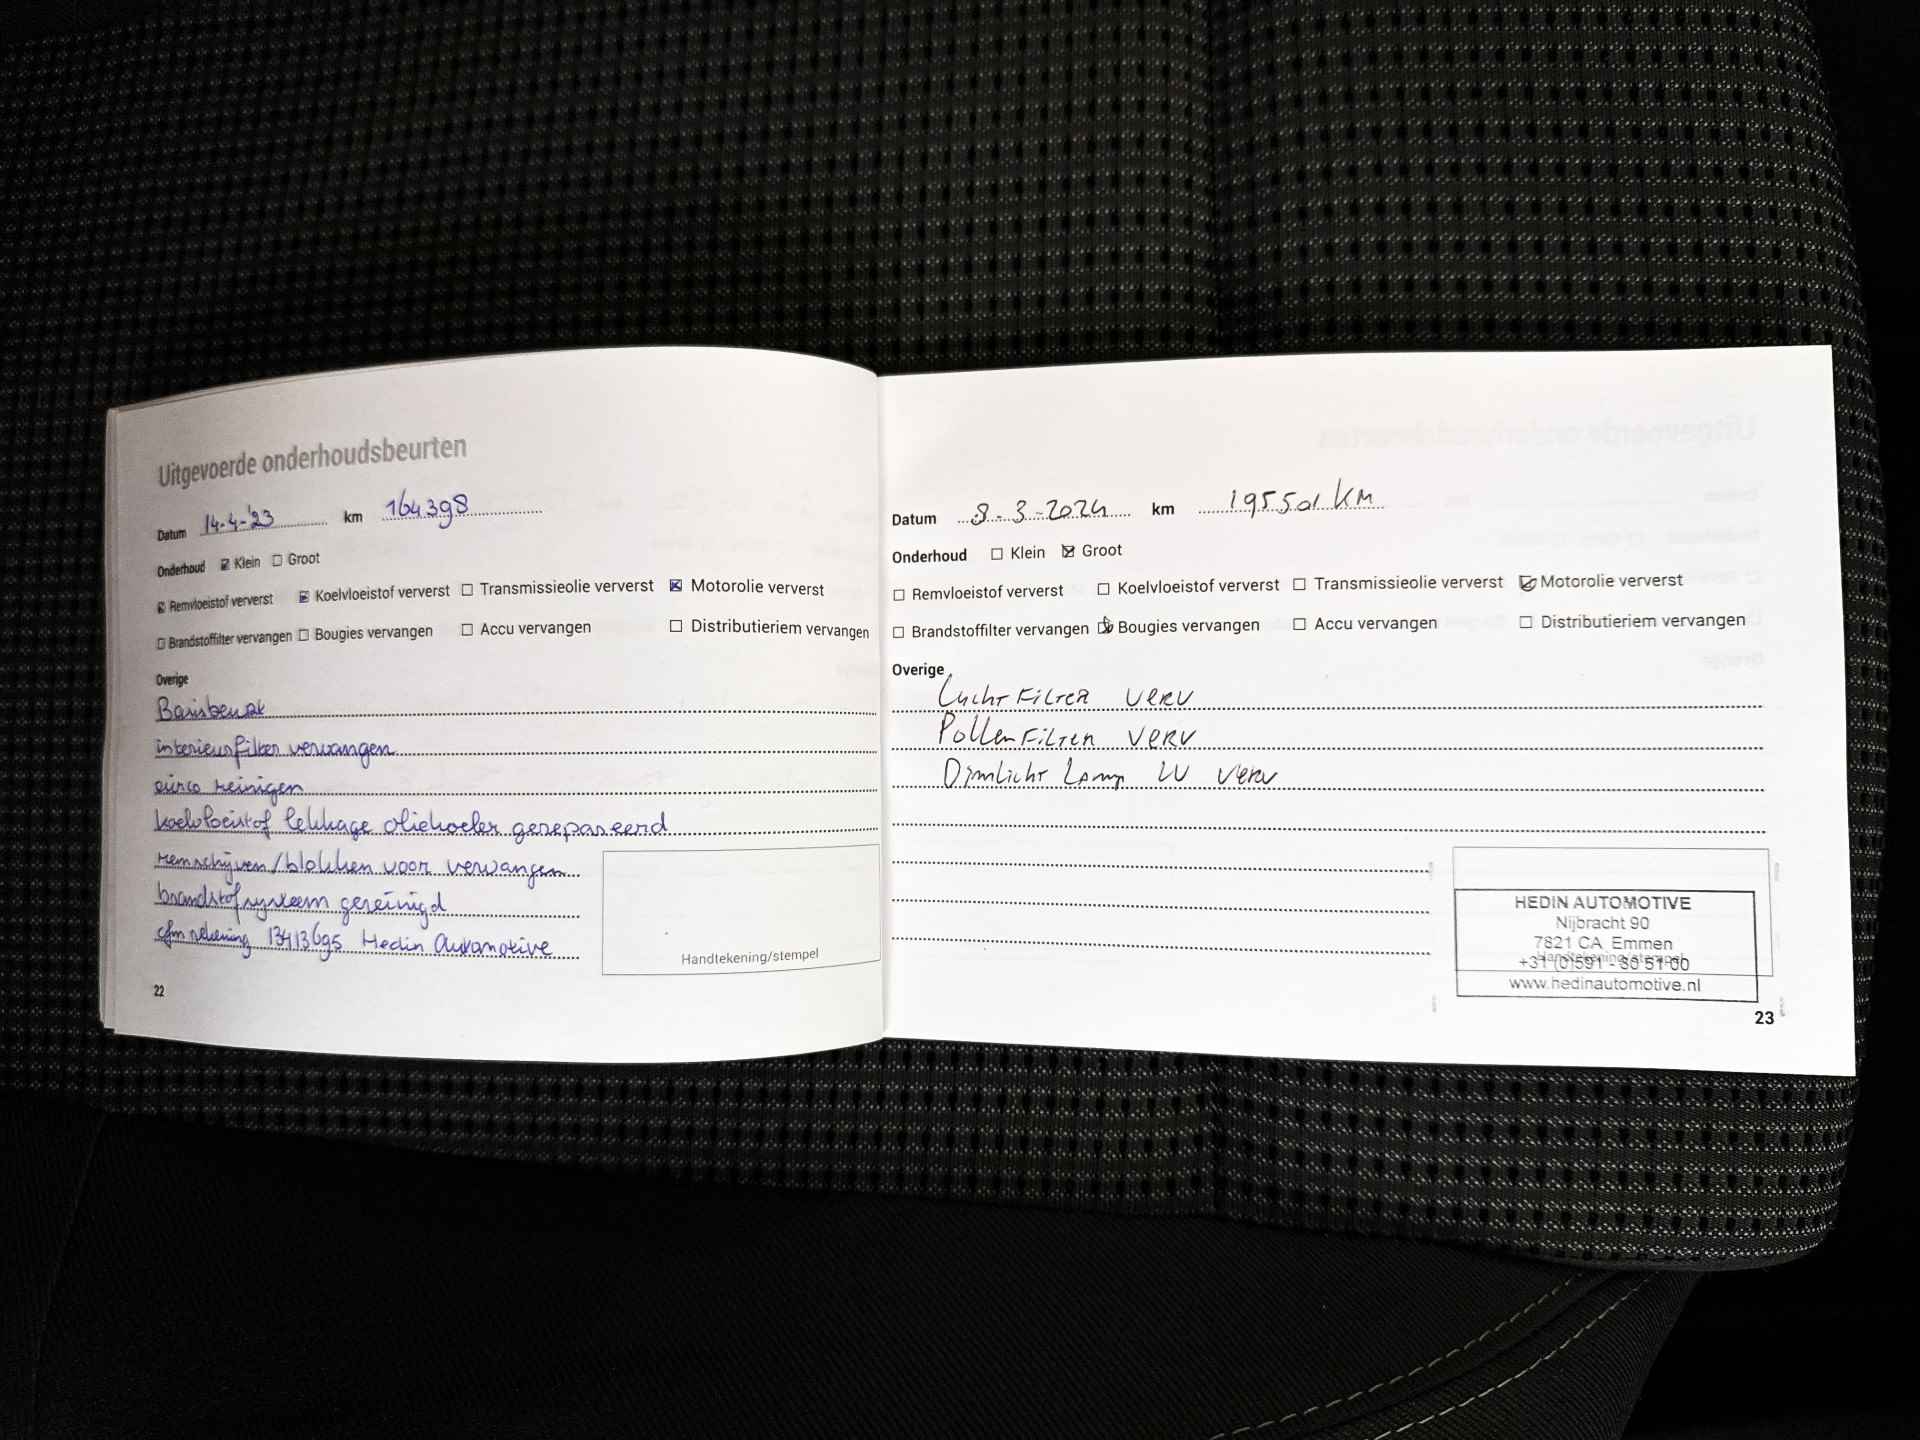 Uitgevoerde onderhoudsbeurten
Datum 14-4-'23 km 164398
Onderhoud Klein Groot
Remvloeistof ververst Koelvloeistof ververst Transmissieolie ververst Motorolie ververst
Brandstoffilter vervangen Bougies vervangen Accu vervangen Distributieriem vervangen
Overige
Basisbeurt
interieurfilter vervangen
airco reinigen
koelvloeistof lekkage oliekoeler gerepareerd
remschijven/blokken voor vervangen
brandstofsysteem gereinigd
cfm rekening 13413695 Hedin Automotive
Handtekening/stempel
22
Datum 8-3-2024 km 195501 KM
Onderhoud Klein Groot
Remvloeistof ververst Koelvloeistof ververst Transmissieolie ververst Motorolie ververst
Brandstoffilter vervangen Bougies vervangen Accu vervangen Distributieriem vervangen
Overige
Luchtfilter verv
Pollenfilter verv
Dimlicht Lamp LV verv
HEDIN AUTOMOTIVE
Nijbracht 90
7821 CA Emmen
Handtekening/stempel
+31 (0)591 - 30 51 00
www.hedinautomotive.nl
23